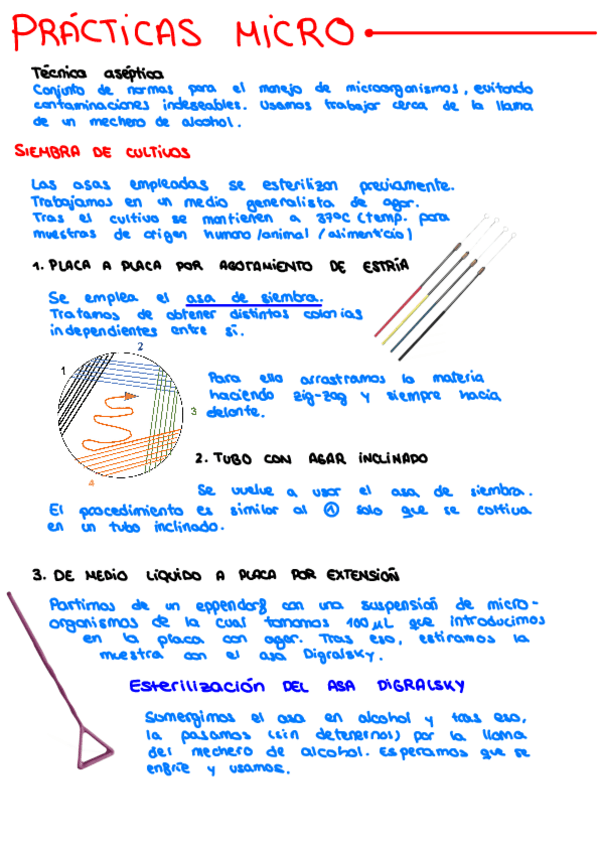 PRÁCTICAS MICRO
Técnica aséptica
Conjunto de normas para el manejo de microorganismos, evitando
contaminaciones indeseables. Usamos trabajar cerca de la llama
de un mechero de alcohol.
SIEMBRA DE CULTIVOS
Las asas empleadas se esterilizan previamente.
Trabajamos en un medio generalista de agar.
Tras el cultivo se mantienen a 37ºC (temp. para
muestras de origen humano/animal /alimenticio)
1. PLACA A PLACA POR AGOTAMIENTO DE ESTRÍA
Se emplea el asa de siembra.
Tratamos de obtener distintas colonias
independientes entre sí.
2
1
3
4
Para ello arrastramos la materia
haciendo zig-zag y siempre hacia
delante.
2. TUBO CON AGAR INCLINADO
Se vuelve a usar el asa de siembra.
El procedimiento es similar al ① solo que se cultiva
en un tubo inclinado.
3. DE MEDIO LÍQUIDO A PLACA POR EXTENSIÓN
Partimos de un eppendorg con una suspensión de micro-
organismos de la cual tomamos 100 µL que introducimos
en la placa con agar. Tras eso, estiramos la
muestra con el asa Digralsky.
Esterilización DEL ASA DIGRALSKY
Sumergimos el asa en alcohol y tras eso,
la pasamos (sin detenernos) por la llama
del mechero de alcohol. Esperamos que se
enfríe y usamos.